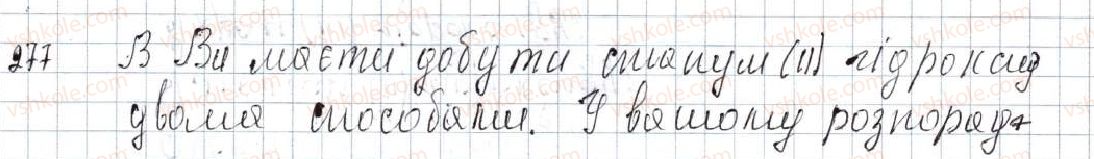 277 В Ви маєти добути станум (II) гідроксид
двома способами. У вашому розпоряд+